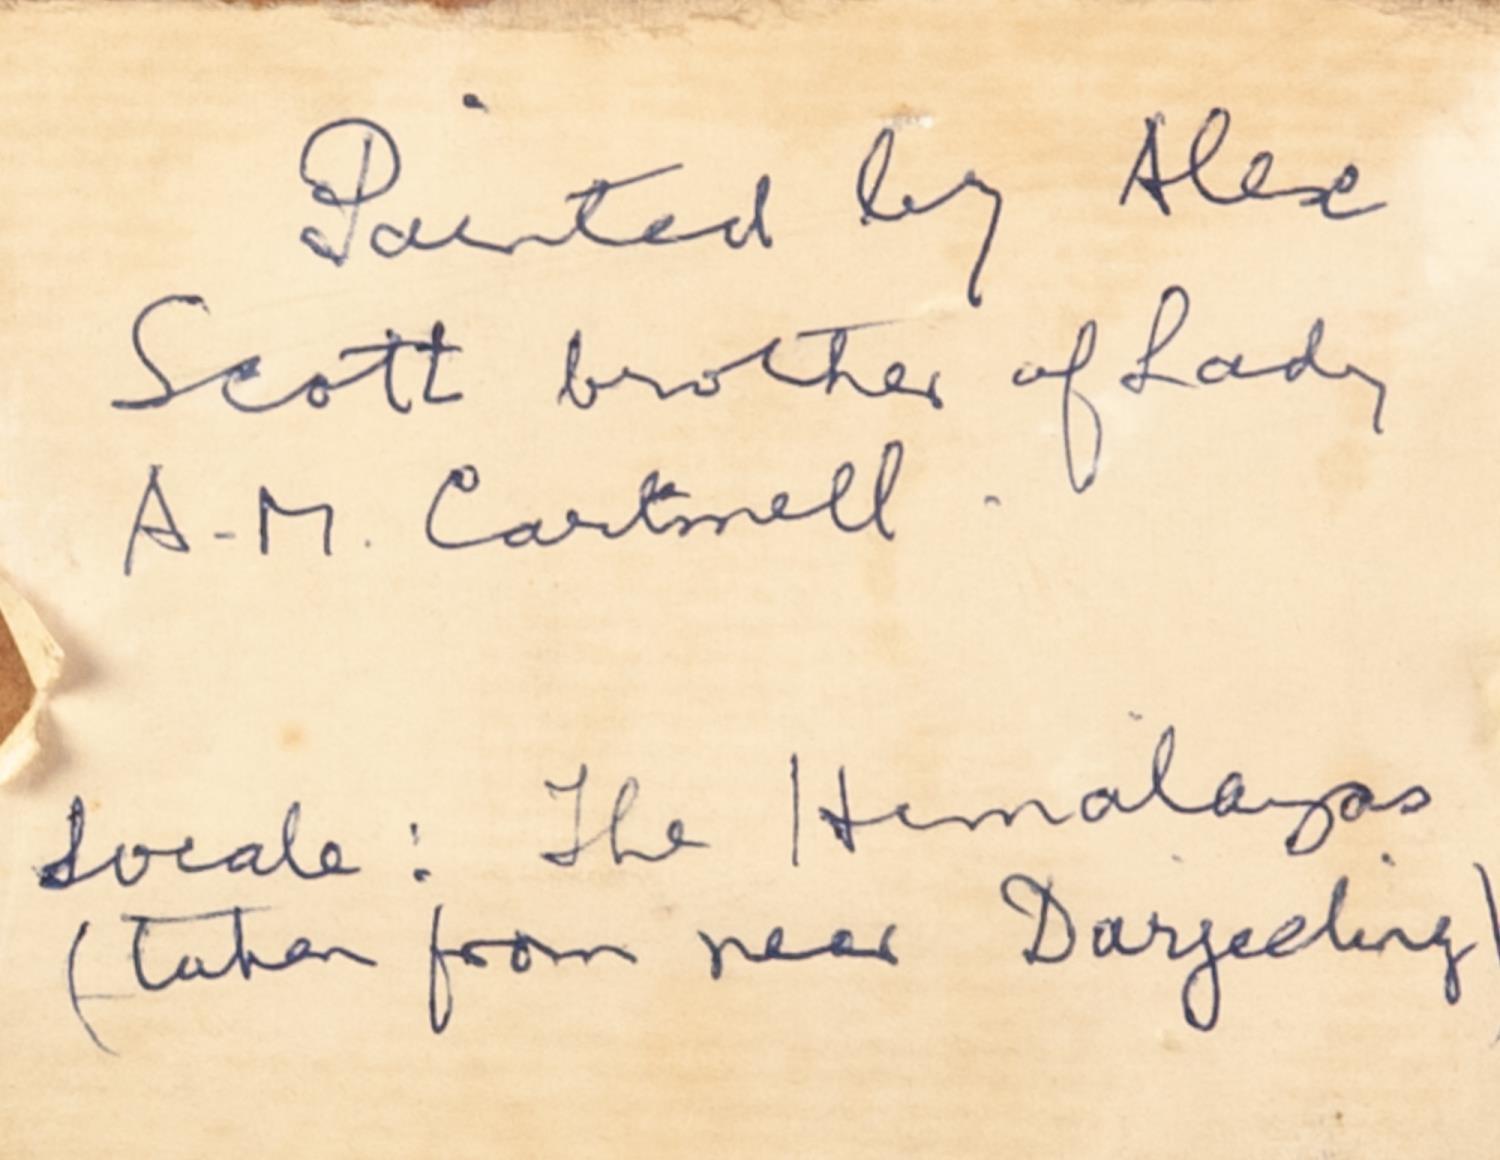 Painted by Alex
Scott brother of Lady
A-M. Cartmell.
Locale: The Himalayas
(taken from near Darjeeling)